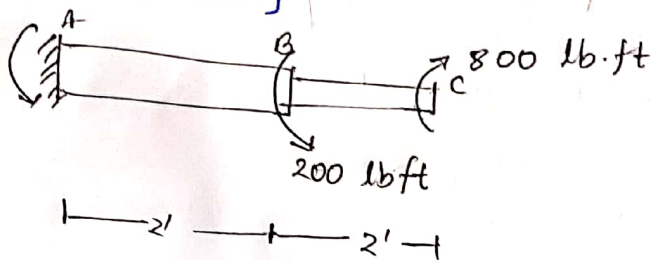 A
B
800 lb.ft
C
200 lbft
2'
2'